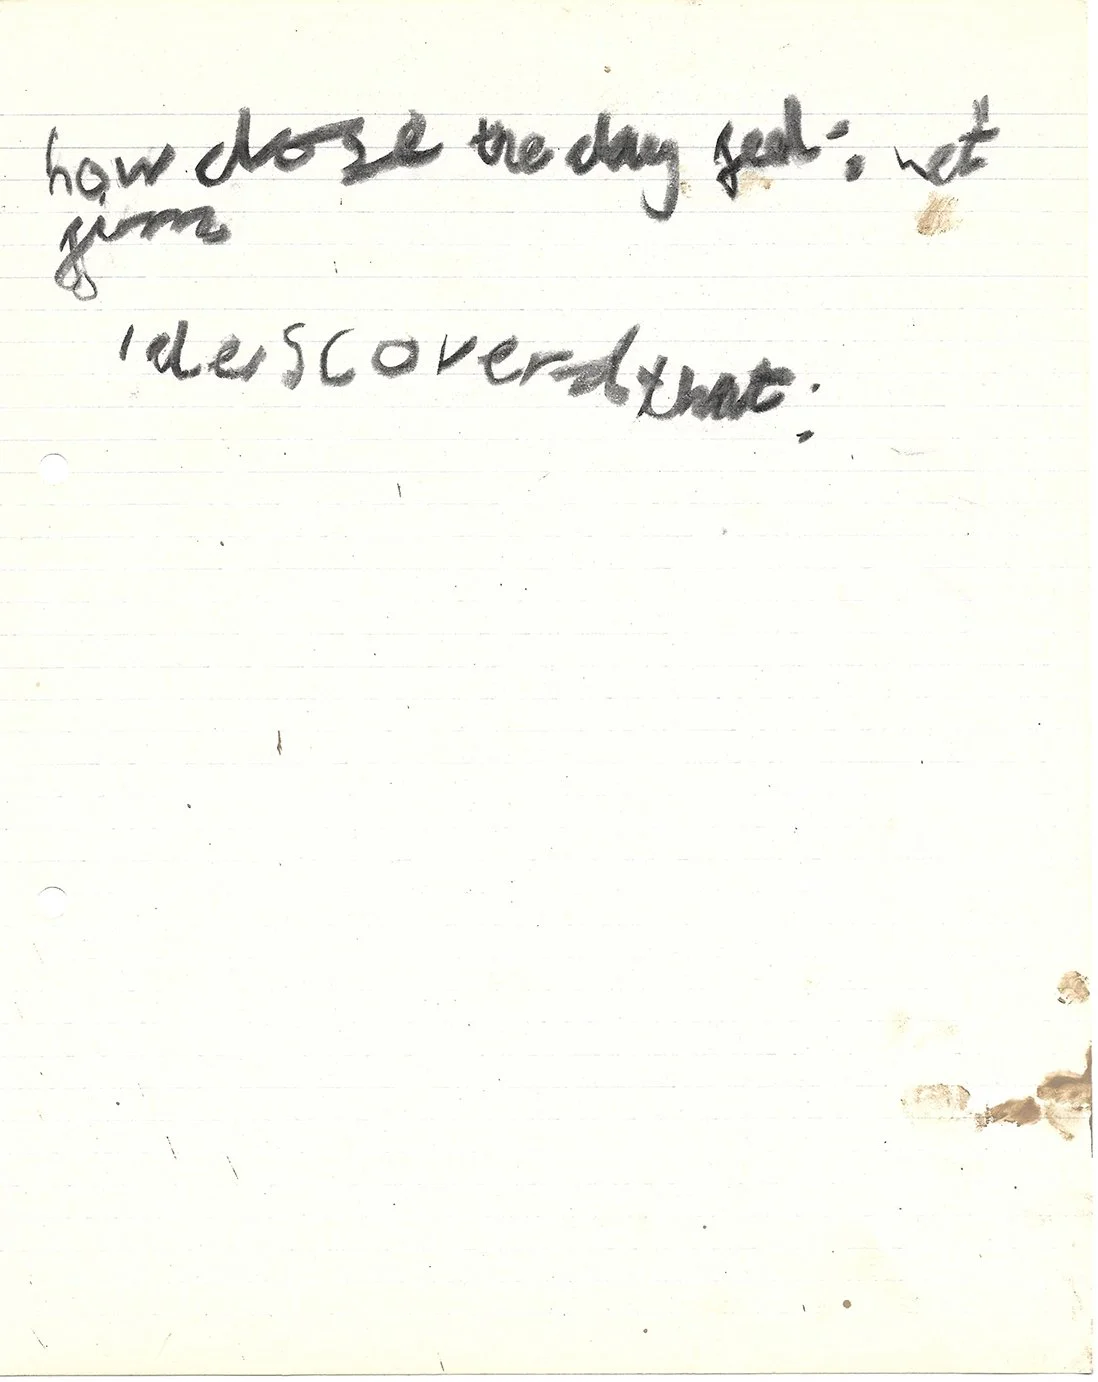 how dose the day feel:. wet
gum
I derscoverd that: